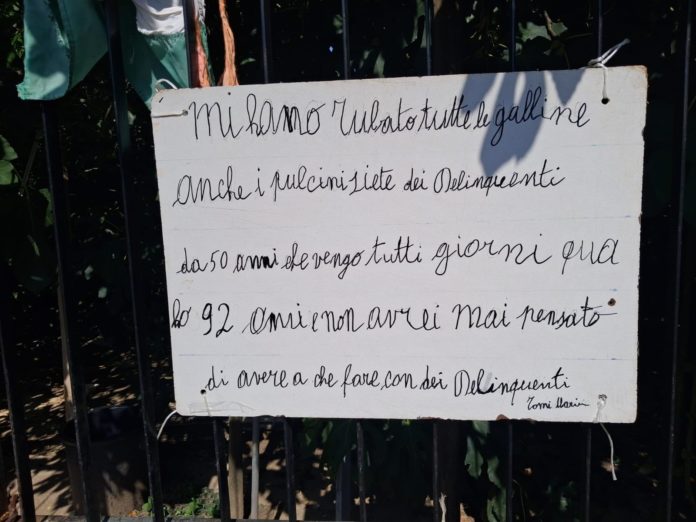 Mi hanno rubato tutte le galline
anche i pulcini siete dei Delinquenti
da 50 anni che vengo tutti giorni qua
ho 92 anni e non avrei mai pensato
di avere a che fare con dei Delinquenti